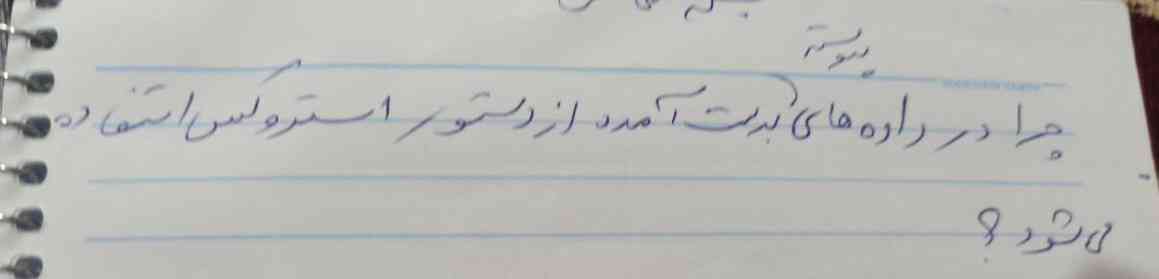 پیوسته
چرا در داده های بدست آمده از دستور استروکس استفاده
می شود ؟